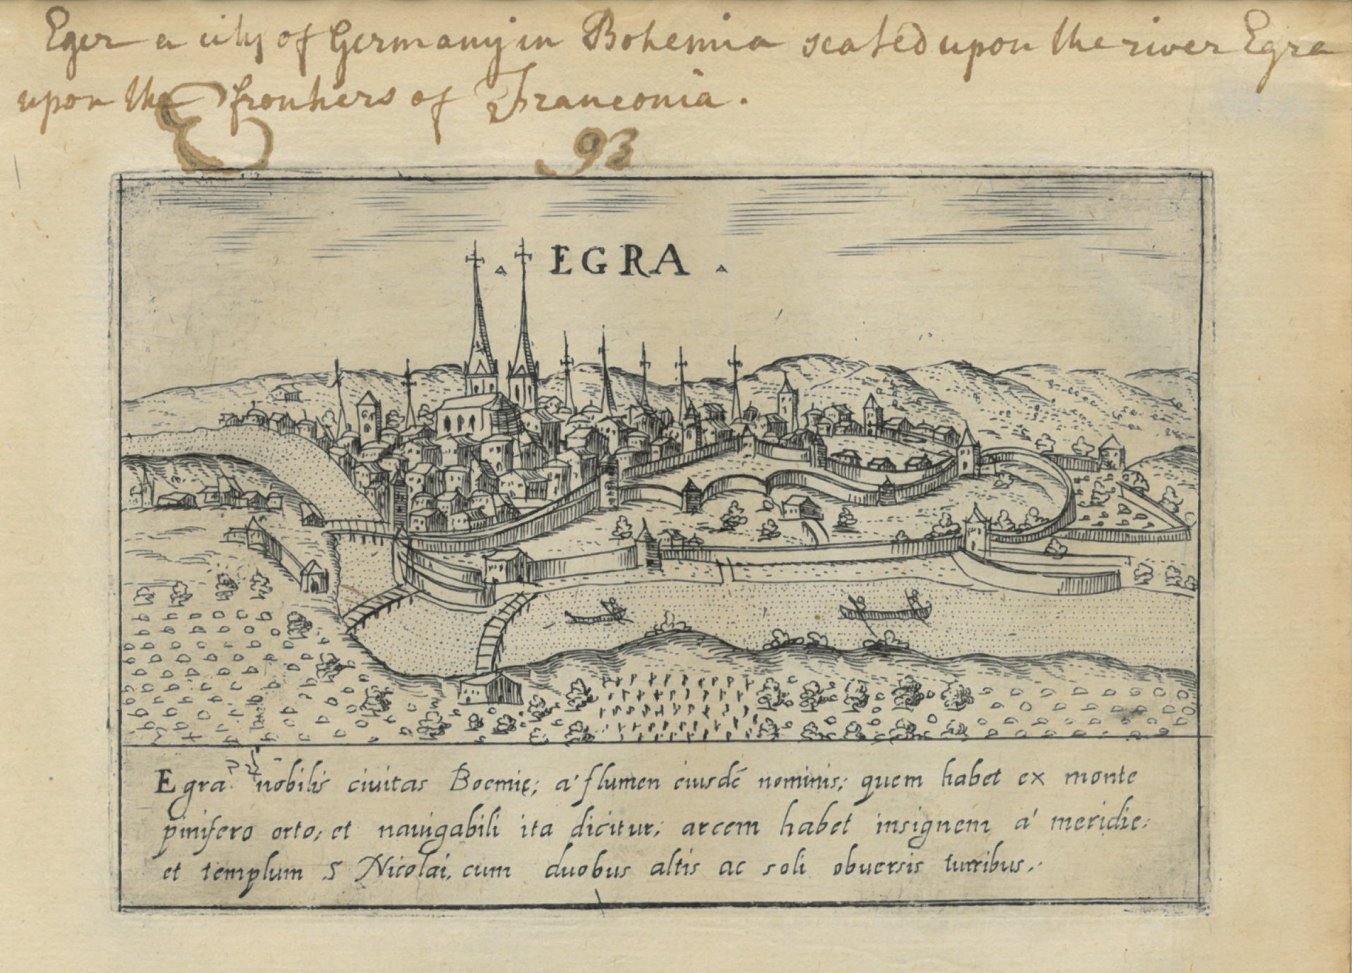 Eger a city of Germany in Bohemia seated upon the river Egra
upon the frontiers of Franconia.
93
EGRA
Egra nobilis ciuitas Boemię; a' flumen eiusdē nominis; quem habet ex monte
pinifero orto, et nauigabili ita dicitur; arcem habet insignem a' meridie;
et templum S Nicolai, cum duobus altis ac soli obuersis turribus.